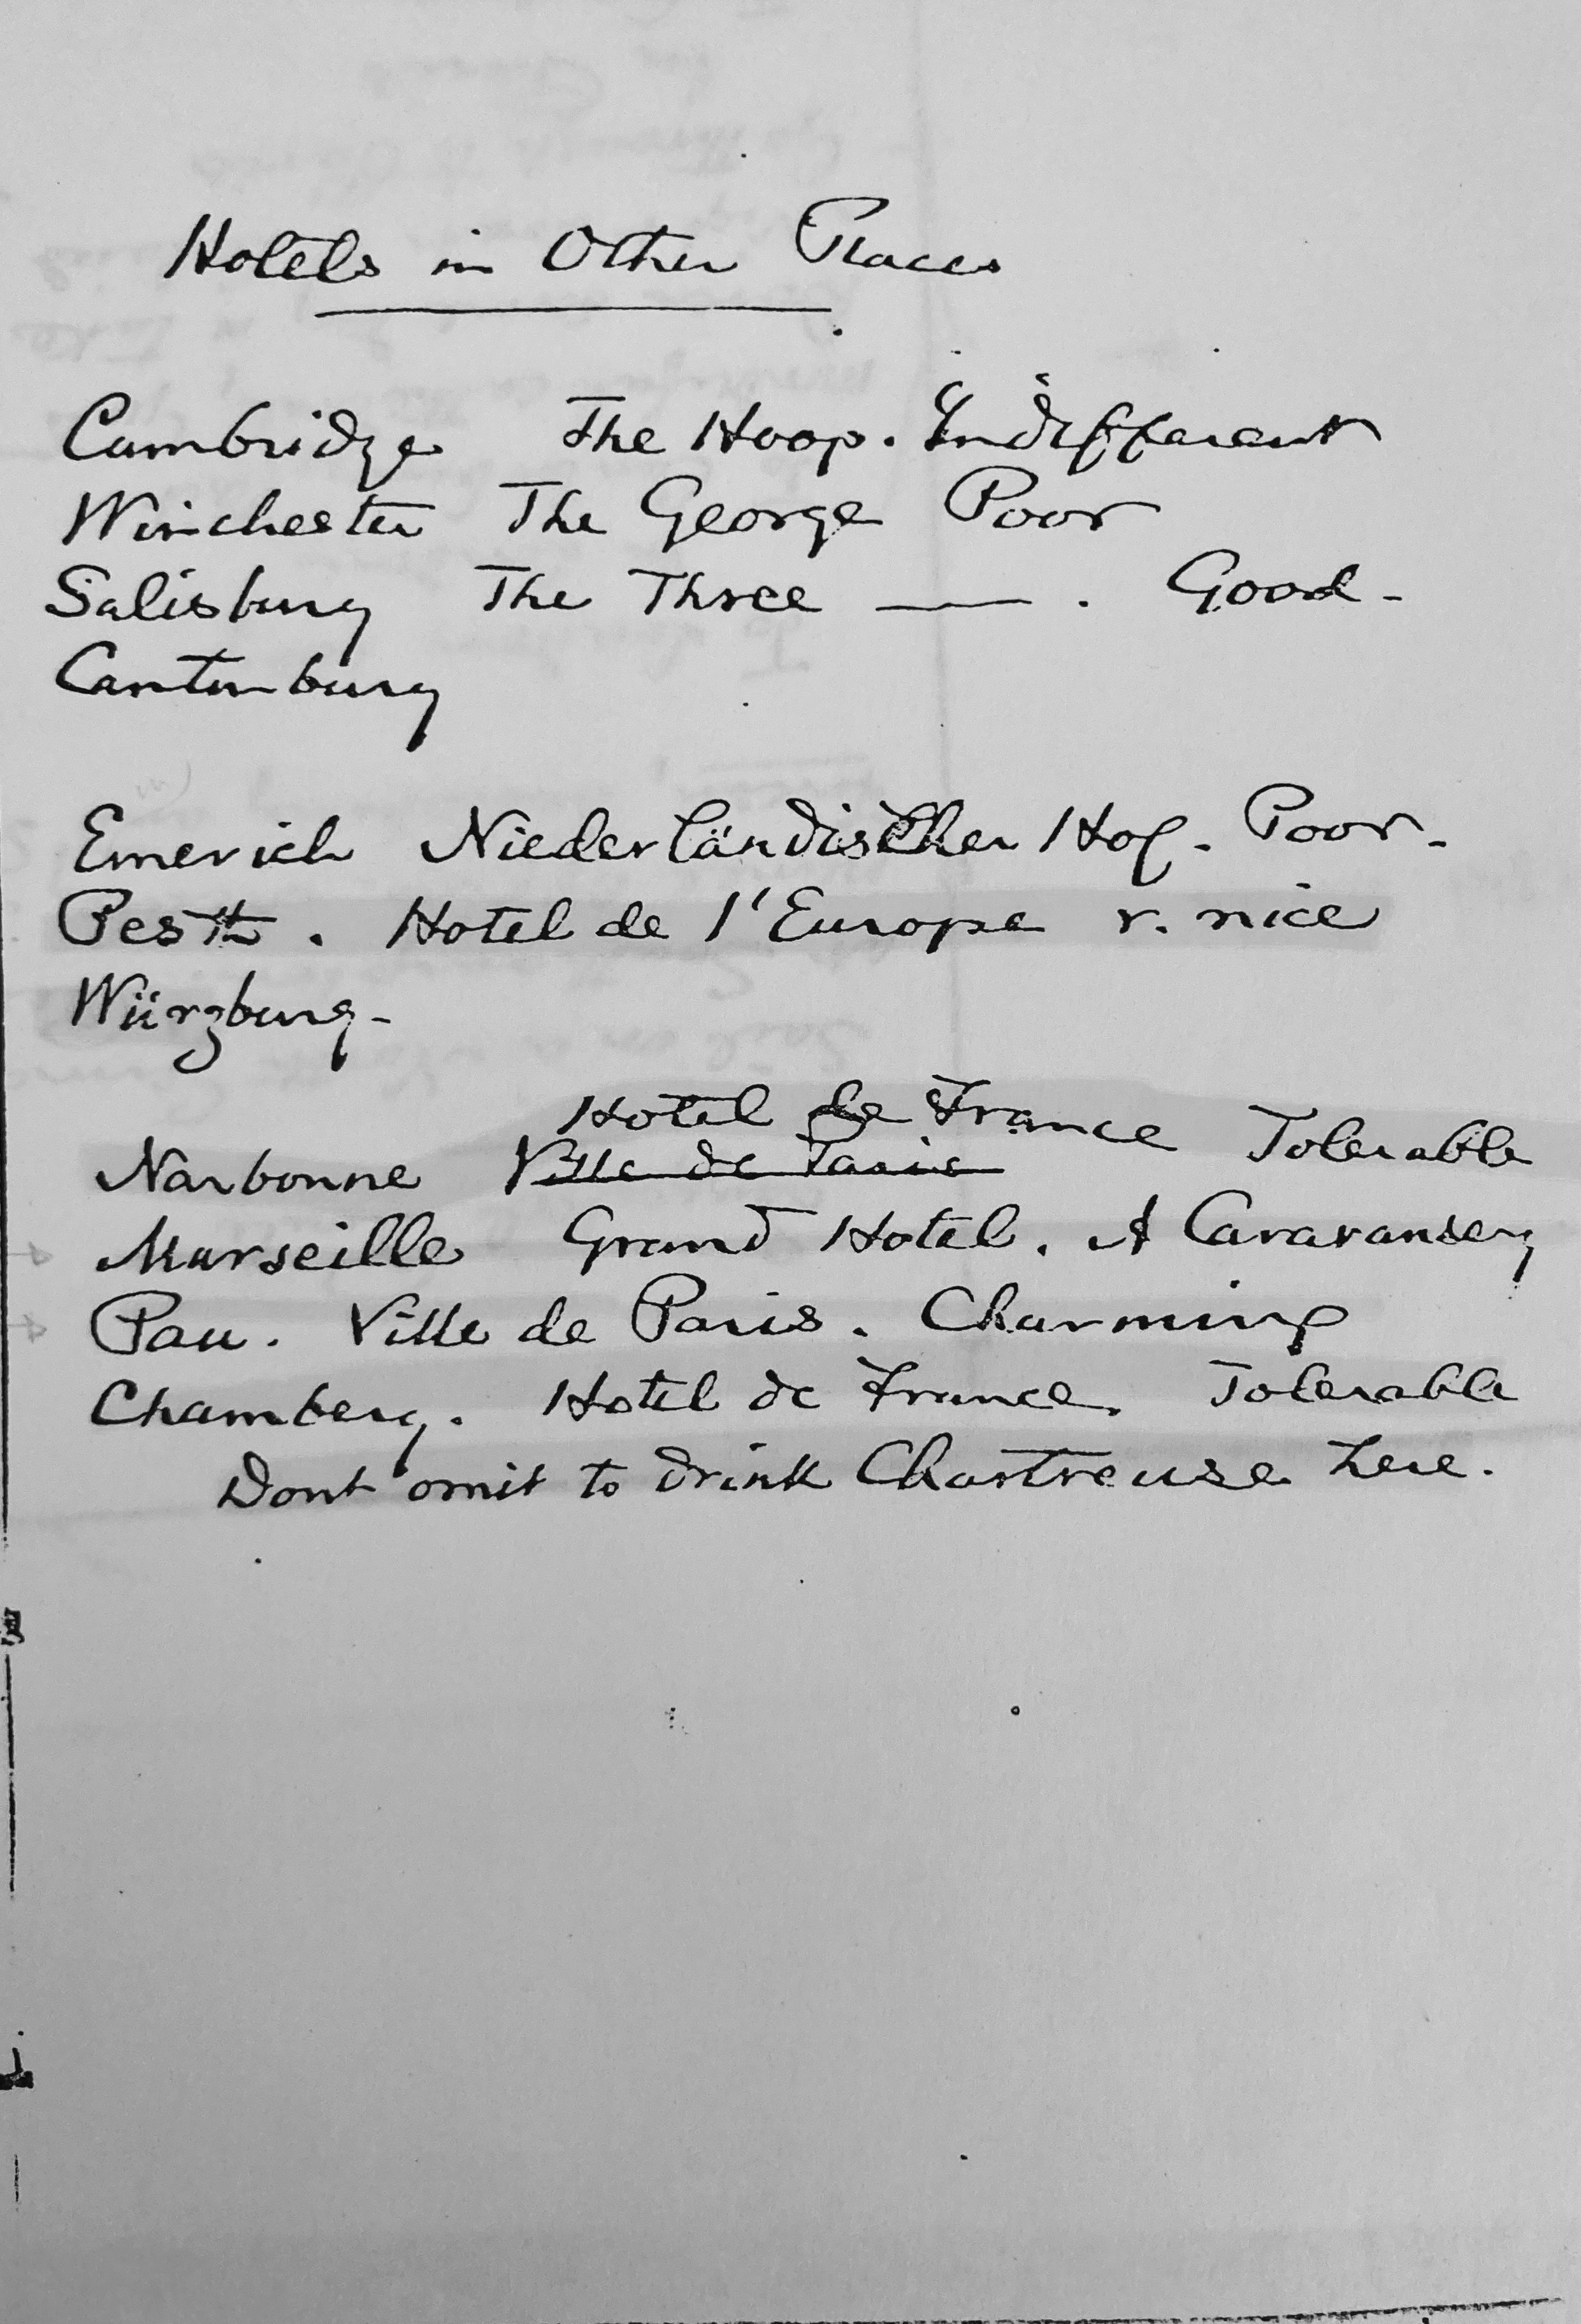 Hotels in Other Places
Cambridge The Hoop. Indifferent
Winchester The George Poor
Salisbury The Three —— . Good -
Canterbury
Emerich Niederländischer Hof. Poor.
Pesth. Hotel de l'Europe v. nice
Würzburg -
Hotel de France Tolerable
Narbonne Ville de Paris
Marseille Grand Hotel. A Caravansery
Pau. Ville de Paris. Charming
Chambery. Hotel de France. Tolerable
Dont omit to drink Chartreuse here.